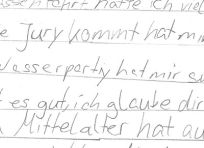 ssenfahrt hatte ich viel
e Jury kommt hat mir
Wasserparty hat mir au
t es gut, ich glaube dir
Mittelalter hat au